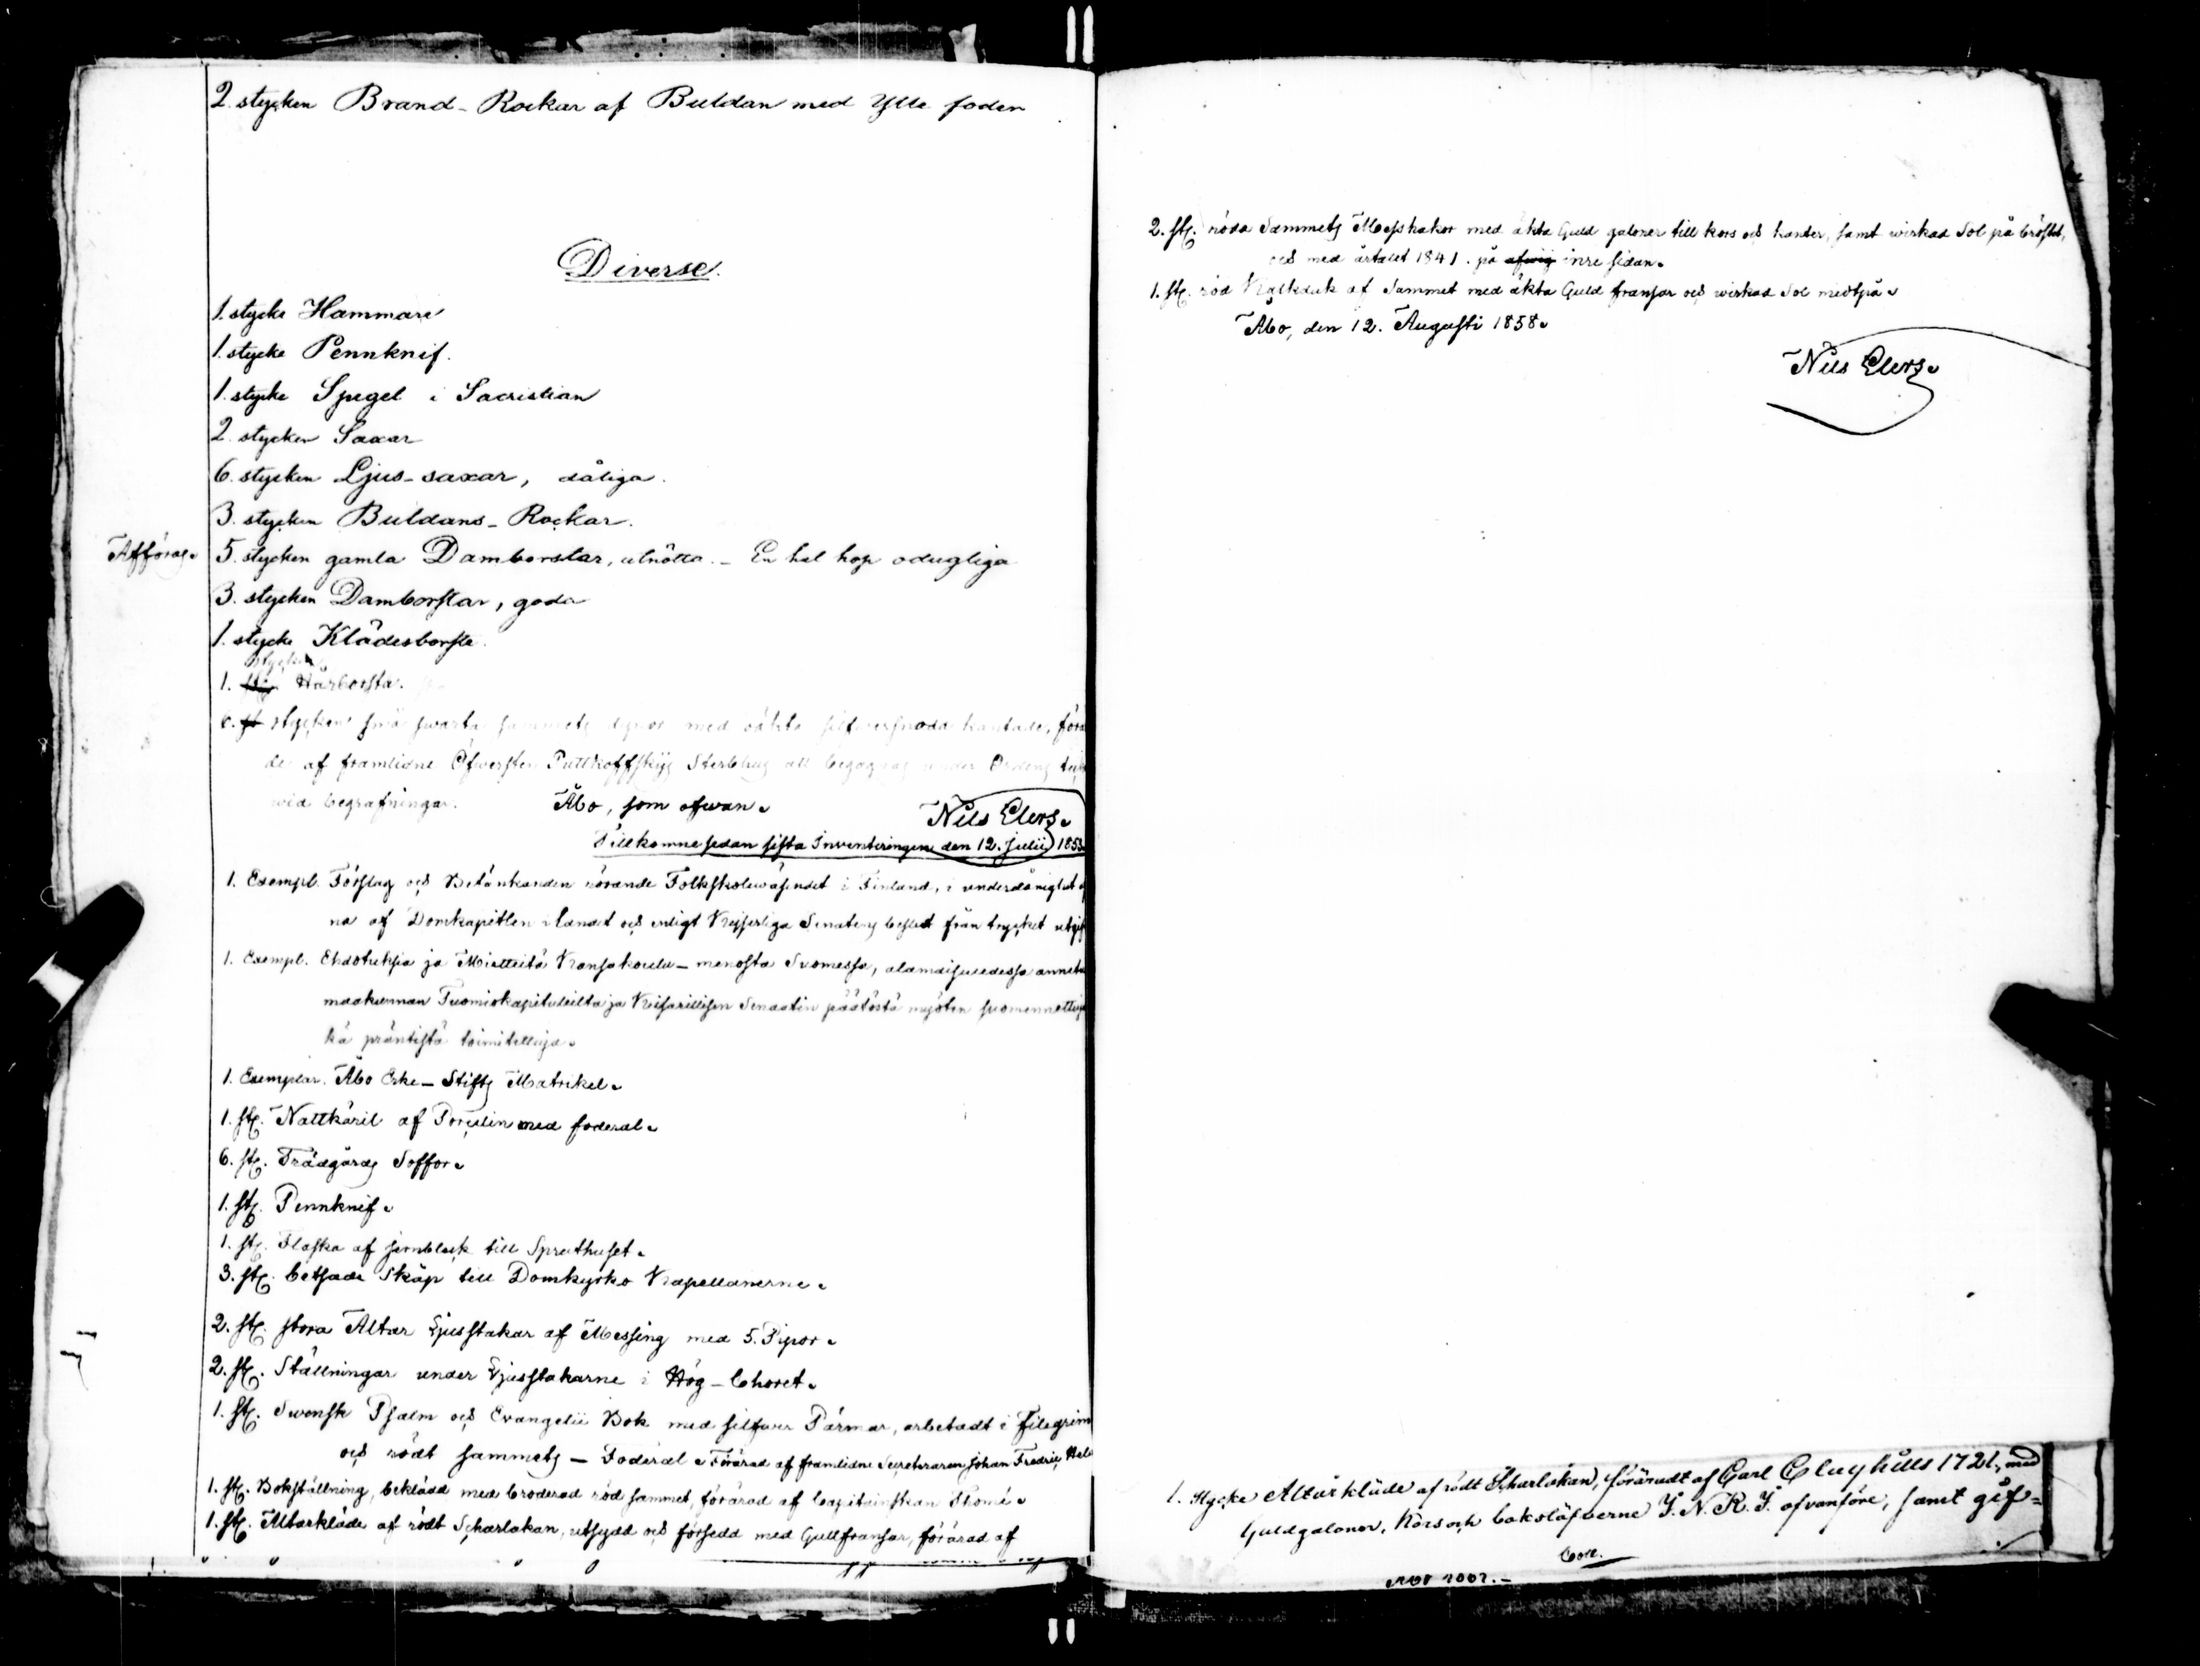 2. stycken Brand-Rockar af Buldan med Ylle foder
Diverse.
1. stycke Hammare
1. stycke Pennknif.
1. stycke Spegel i Sacristian
2. stycken Saxar
6. stycken Ljus-saxar, dåliga.
3. stycken Buldans-Rockar.
Afföras.
5. stycken gamla Damborstar, utnötta. - En hel hop odugliga
3. stycken Damborstar, goda
1. stycke Klädesborste.
stycken
1. Hårborsta.
6. stycken små swarta sammets dynor med oäkta silfwersnodd kantade, förä
de af framlidne Öfwersten Sterbhus att begagnas under Ordens
wid begrafningar. Åbo, som ofwan.
Nils Elers.
Tillkomne sedan sista Inventeringen den 12. Julii 1853.
1. Exempl. Förslag och Betänkanden rörande Folkskolewäsendet i Finland, i underdånighet
na af Domkapitlen i landet och enligt Kejserliga Senatens beslut från trycket utgif
1. Exempl. Ehdotuksia ja Mietteitä Kansakoulu-menosta Suomessa, alamaisuudessa annetu
maakunnan Tuomiokapituleilta ja Keisarillisen Senaatin päätöstä myöten suomennettuja
kä präntistä toimitettuja.
1. Exemplar. Åbo Erke-Stifts Matrikel.
1. st. Nattkäril af Porcelin med foderal.
6. st. Trädgårds Soffor.
1. st. Pennknif.
1. st. Flaska af jernbleck till Spruthuset.
3. st. betsade Skåp till Domkyrko Kapellanerne.
2. st. stora Altar Ljusstakar af Messing med 5. Pipor.
2. st. Ställningar under Ljusstakarne i Hög-Choret.
1. st. Swensk Psalm och Evangelii Bok med silfwer Pärmar, arbetadt i Filegrim
och rödt sammets - Foderal. Förärad af framlidne Secreteraren Johan Fredric
1. st. Bokställning, beklädd med broderad röd sammet, förärad af Capitainskan Thomé.
1. st. Altarkläde af rödt Scharlakan, utsydd och försedd med Gullfransar, förärad af
2. st. röda Sammets Messhakar med äkta Guld galoner till kors och kanter, samt wirkad Sol på bröstet,
och med årtalet 1841. på afwig inre sidan.
1. st. röd Kalkduk af Sammet med äkta Guld fransar och wirkad Sol midtpå.
Åbo, den 12. Augusti 1858.
Nils Elers.
1. stycke Altarkläde af rödt Scharlakan, föräradt af Carl Clayhills 1721, med
Guldgaloner, Kors och bokstäfverne I. N. R. I. ofvanföre, samt gåf=